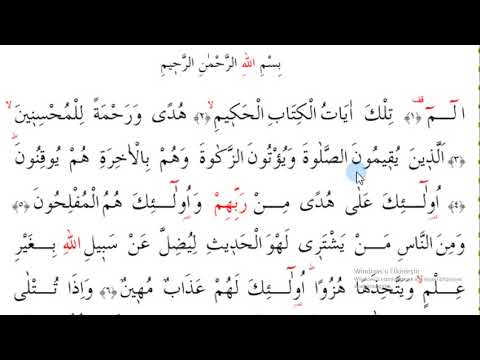 بِسْمِ اللهِ الرَّحْمٰنِ الرَّح۪يمِ
الٓـمٓ ۚ ﴿١﴾ تِلْكَ اٰيَاتُ الْكِتَابِ الْحَك۪يمِۙ ﴿٢﴾ هُدًى وَرَحْمَةً لِلْمُحْسِن۪ينَۙ
﴿٣﴾ اَلَّذ۪ينَ يُق۪يمُونَ الصَّلٰوةَ وَيُؤْتُونَ الزَّكٰوةَ وَهُمْ بِالْاٰخِرَةِ هُمْ يُوقِنُونَۜ
﴿٤﴾ اُو۬لٰٓئِكَ عَلٰى هُدًى مِنْ رَبِّهِمْ وَاُو۬لٰٓئِكَ هُمُ الْمُفْلِحُونَ ﴿٥﴾
وَمِنَ النَّاسِ مَنْ يَشْتَر۪ى لَهْوَ الْحَد۪يثِ لِيُضِلَّ عَنْ سَب۪يلِ اللهِ بِغَيْرِ
عِلْمٍۗ وَيَتَّخِذَهَا هُزُوًاۜ اُو۬لٰٓئِكَ لَهُمْ عَذَابٌ مُه۪ينٌ ﴿٦﴾ وَاِذَا تُتْلٰى
Windows'u Etkinleştir